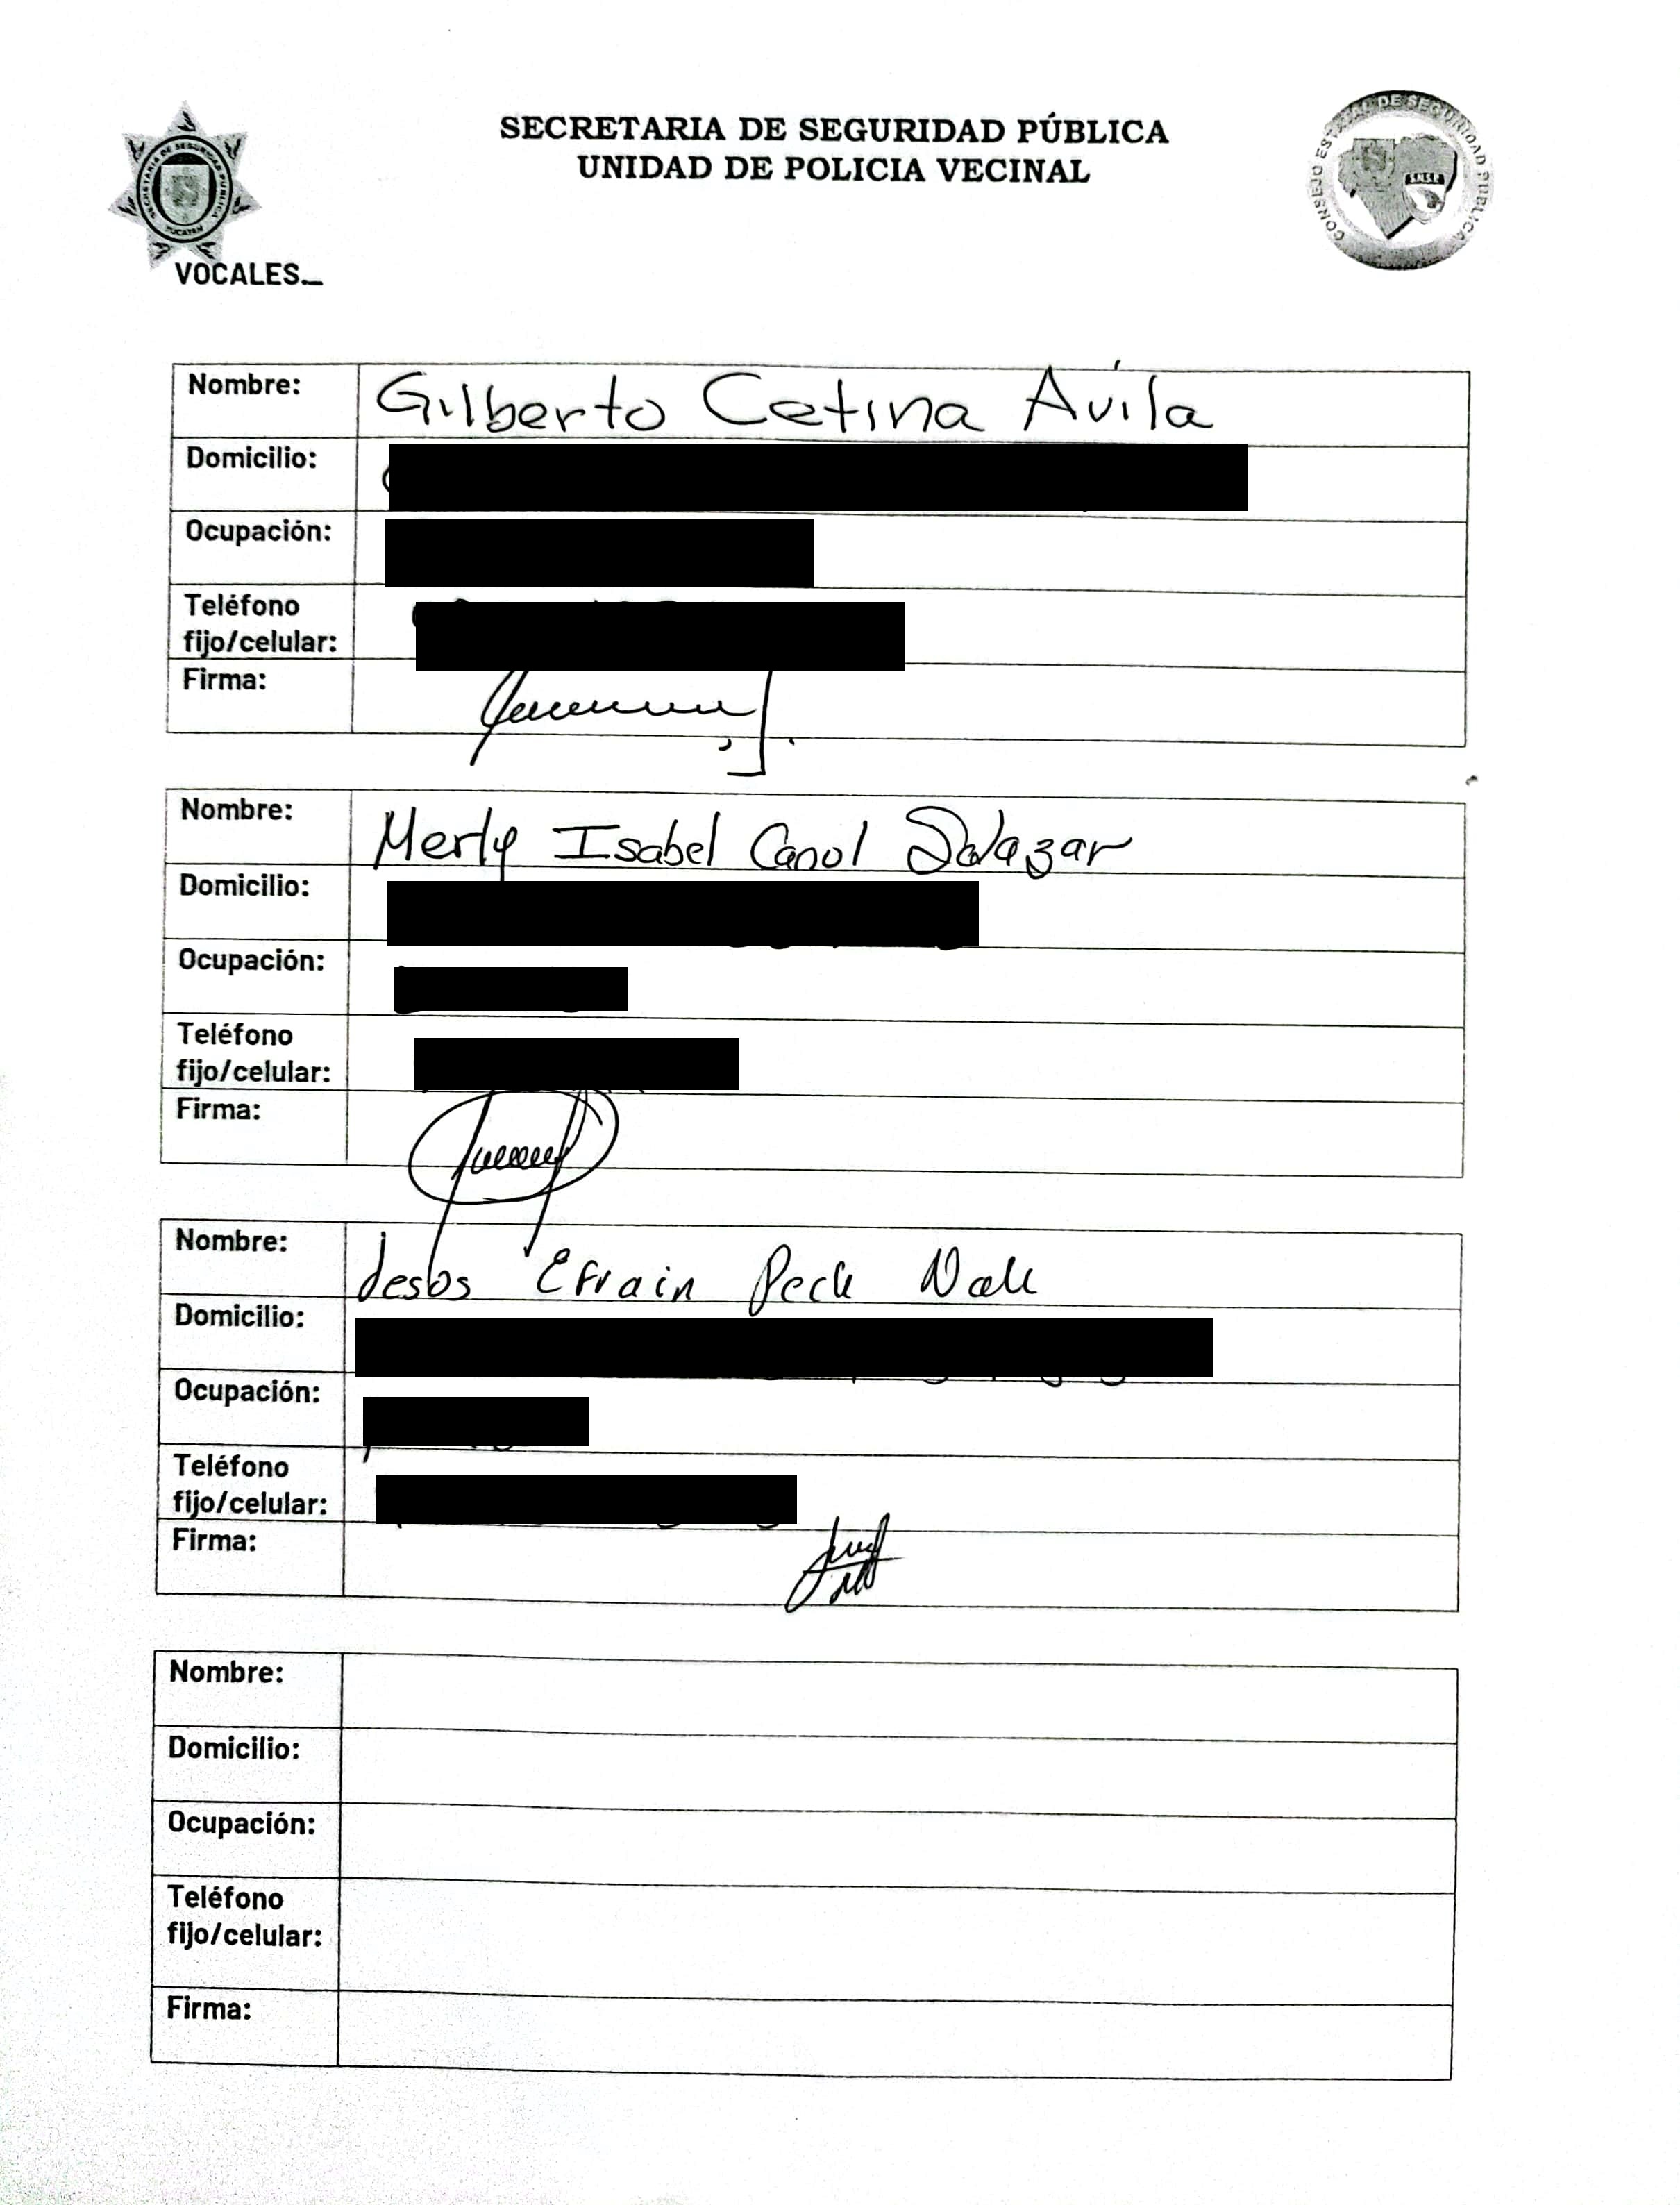 SECRETARIA DE SEGURIDAD PÚBLICA
UNIDAD DE POLICIA VECINAL
SECRETARIA DE SEGURIDAD PUBLICA
YUCATAN
CONSEJO ESTATAL DE SEGURIDAD PUBLICA
VOCALES_
Nombre: Gilberto Cetina Avila
Domicilio:
Ocupación:
Teléfono
fijo/celular:
Firma:
Nombre: Merly Isabel Canul Salazar
Domicilio:
Ocupación:
Teléfono
fijo/celular:
Firma:
Nombre: Jesus Efrain Pech
Domicilio:
Ocupación:
Teléfono
fijo/celular:
Firma:
Nombre:
Domicilio:
Ocupación:
Teléfono
fijo/celular:
Firma: